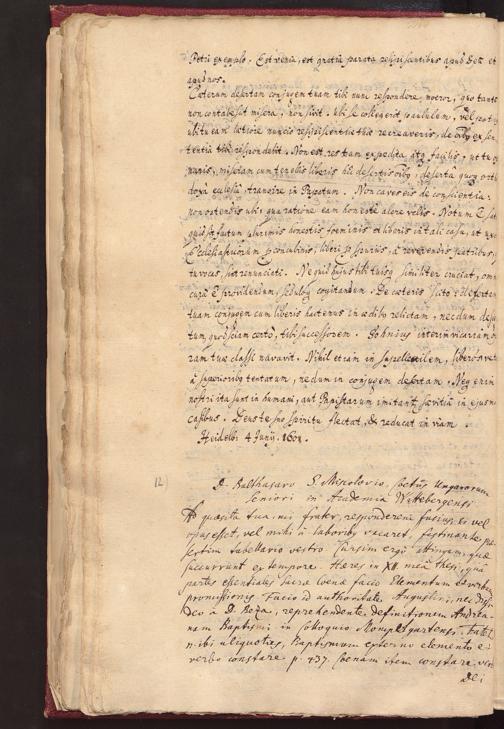 Petri exemplo. Est venia, est gratia parata resipiscentibus apud Deũ et
apud nos.
Cæterum desertam conjugem tuam tibi num respondere, moeror, quo tantū
non contabescit misera, non sivit. Ubi se collegerit paululum, vel postq̃
ubi tu eam lætiore nuncio resipiscentiæ tuæ recreaveris, de
tentia tibi respondebit. Non est res tam expedita atq facilis, ut tu
miseram cum tenellis liberis desertis, deserta quoq orto
doxa ecclesia, transire in Papatum. Non caves eis de conscientia
non ostendis ubi, qua ratione eam honeste alere velis. Notum
factum plurimis honestis foeminis et liberis in tali casu, ut
Ecclesiasticorum concubinis, liberi spuriis, à reverendis patribus,
tu vocas, sint renunciati. Ne quid hujus tibi tuisq similiter eveniat, omni
cura providendum, sedulo cogitandum. De cæteris scito
tuam conjugem cum liberis hactenus in ædibus relictam, necdum
tum, quod sciam certo, tibi successorem. Pohnius interim vicariam o
ram tuæ classi navavit. Nihil etiam in supellectilem, liberos ve
à superioribus tentatum, nedum in conjugem desertam. Neq enim
nostri ita sunt inhumani, aut Papistarum imitantur sævitiam in ejusm
casibus. Deus te suo spiritu flectat, & reducat in viam.
Heidelb. 4 Junij. 1601.
12
D. Balthasaro S. Mispolovio, Coetus Ungarorum
seniori in Academia Wittebergensi
Ad quæsita tua, mi frater, responderem fusius, si vel
opus esset, vel mihi à laboribus vacaret, festinante præ
sertim tabellario vestro. Cursim ergo attingam, quæ
succurrunt ex tempore. Hæres in XII meâ thesi, quâ
partes essentiales Sacræ Coenæ facio Elementum & verbum
promissionis. Facio id authoritate Augustini, nec dis
deo à D. Beza, reprehendente definitionem Andrea-
nam Baptismi in Colloquio Mompelgartensi.
nibi aliquoties, Baptismum externo elemento et
verbo constare p. 437. Coenam item constare ver
Dei